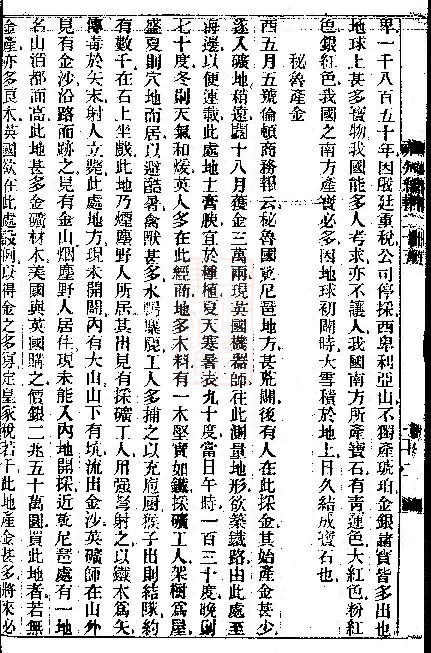 卑一千八百五十年因厥廷重稅公司停採西卑利亞山不獨產琥珀金銀諸寶皆多出也
地球上甚多寶物我國能多人考求亦不讓人我國南方所產寶石有青蓮色大紅色粉紅
色銀紅色我國之南方產寶必多因地球初開時大雪積於地上日久結成寶石也
秘魯產金
西五月五號倫頓商務報云秘魯國寬尼邕地方甚荒開後有人在此採金其始產金甚少
逐入礦地稍遠閱十八月獲金三萬兩現英國機器師在此測量地形欲築鐵路由此處至
海邊以便運載此處地土膏腴宜於種植夏天寒暑表九十度當日午時一百三十度晚則
七十度冬則天氣和煖英人多在此經商地多木料有一木堅實如鐵採礦工人架樹為屋
盛夏則穴地而居以避酷暑禽獸甚多水鴨麋鹿工人多捕之以充庖廚猴子出則結隊約
有數千在石上坐戲此地乃煙塵野人所居其出見有採礦工人用强弩射之以鐵木為矢
傅毒於矢末射人立斃此處地方現未開闢內有大山山下有坑流出金沙英礦師在山外
見有金沙沿路而跡之見有金山烟塵野人居住現未能入內地開採近寬尼邕處有一地
名山治都而當此地甚多金礦材木美國與英國購之價銀二兆五十萬圓買此地者若無
金產亦多良木英國欲在此處設例以得金之多寡定皇家稅若干此地產金甚多將來必